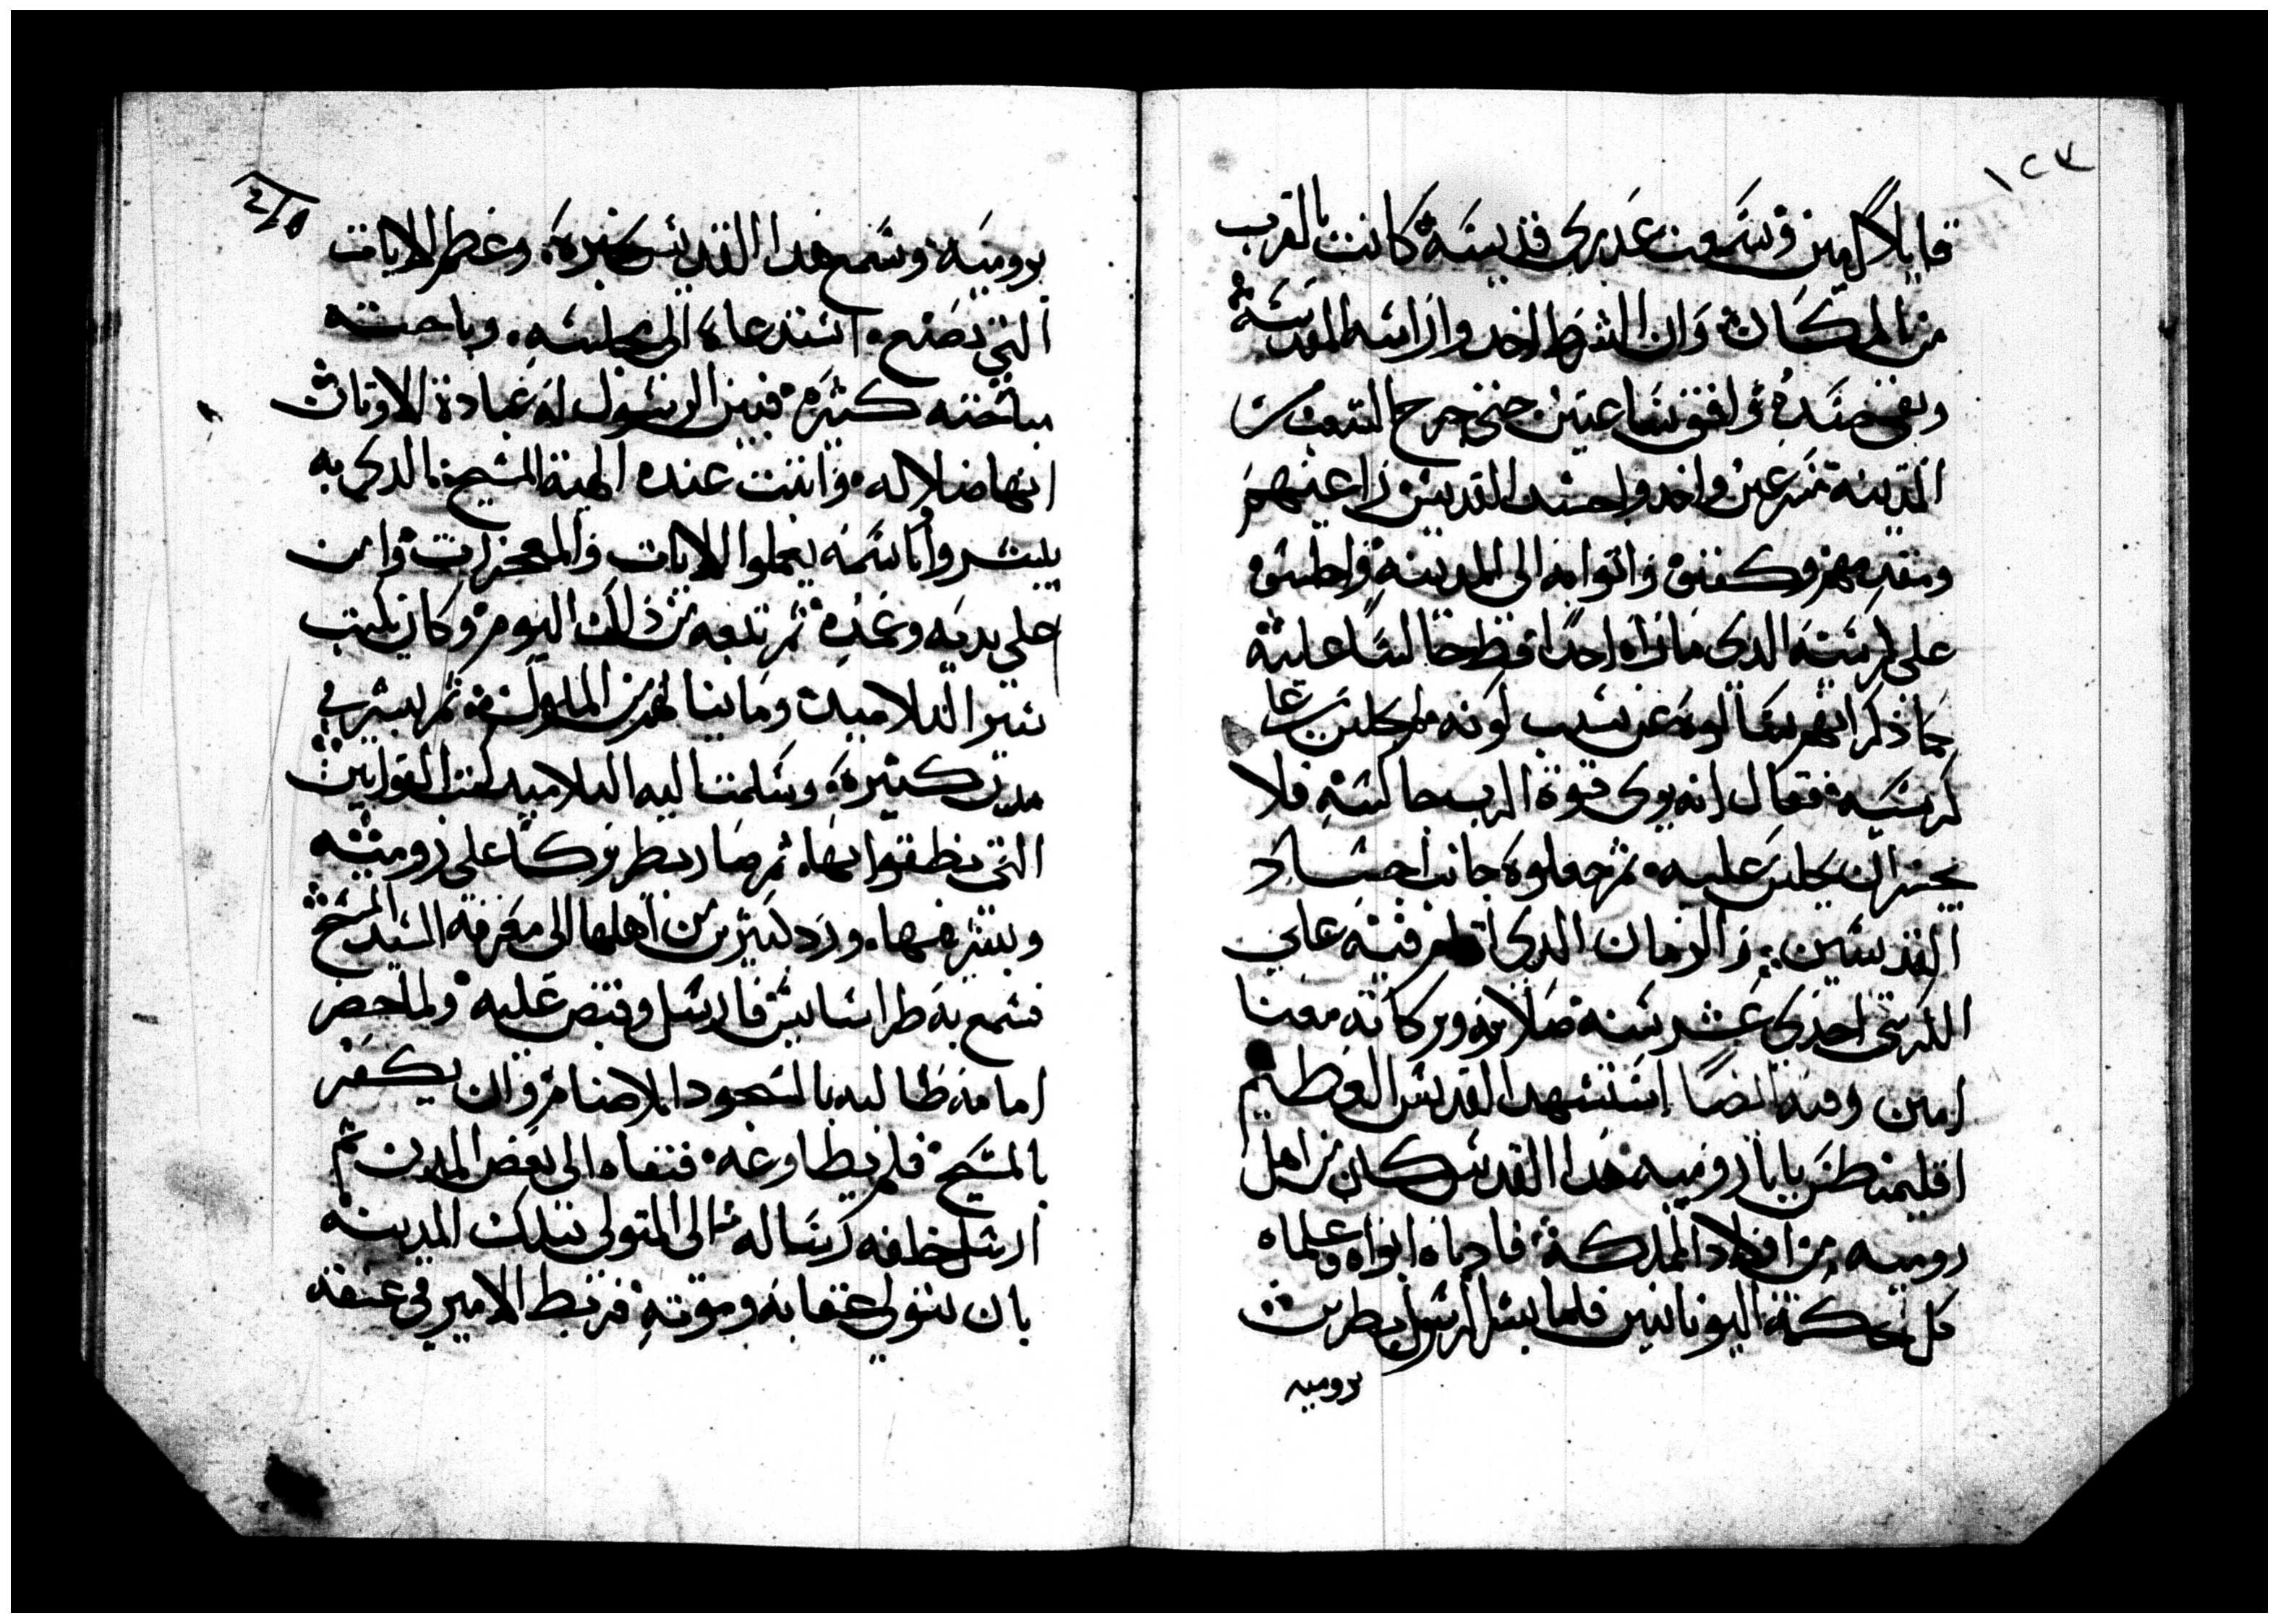 ١٢٧
قايلا امين وسمعت عدري قديسه كانت بالقرب
من المكان وان الشرط اخدوا راسه المقدسة
وبقي جسده وافق ساعتين حتي خرج الشعب من
المدينه مسرعين واخدوا جسد القديس راعيهم
ومقدمهم وكفنوه واتوا به الى المدينه واجلسوه
على كرسيه الدي ما راه احدا قط جالسا عليه
كما ذكر انهم سالوه عن سبب كونه ما يجلس على
كرسيه فقال انه يرى قوة الرب جالسه فلا
يجسر ان يجلس عليه ثم جعلوه جانب اجساد
القديسين والزمان الدي اقام فيه على
الكرسي احدي عشر سنه صلاته وبركاته معنا
امين وفيه ايضا استشهد القديس العظيم
اقليمنطس بابا روميه هدا القديس كان من اهل
روميه من اولاد المملكة فادباه ابواه وعلماه
كل حكمة اليونانيين فلما بشر الرسول بطرس
بروميه
٢١٥
بروميه وسمع هدا القديس خبره وعظم الايات
التي تصنع استدعاه الى مجلسه وباحته
مباحته كتيره فبين الرسول له عبادة الاوتان
انها ضلاله واتبت عنده الهية المسيح الدي به
يبشروا وباسمه يعملوا الايات والمعجزات وامن
على يديه وعمده ثم تبعه من ذالك اليوم وكان يكتب
سير التلاميد وما ينالهم من الملوك ثم بشر في
مدن كتيره وسلمت اليه التلاميد كتب القوانين
التي نطقوا بها ثم صار بطريركا على روميه
وبشر فيها ورد كتير من اهلها الى معرفه السيد المسيح
فسمع به طراسابيس فارسل وقبض عليه ولما حضر
امامه طالبه بالسجود للاصنام وان يكفر
بالمسيح فلم يطاوعه فنفاه الى بعض المدن ثم
ارسل خلفه رساله الى المتولي بتلك المدينه
بان يتولى عقابه وموته فربط الامير في عنقه